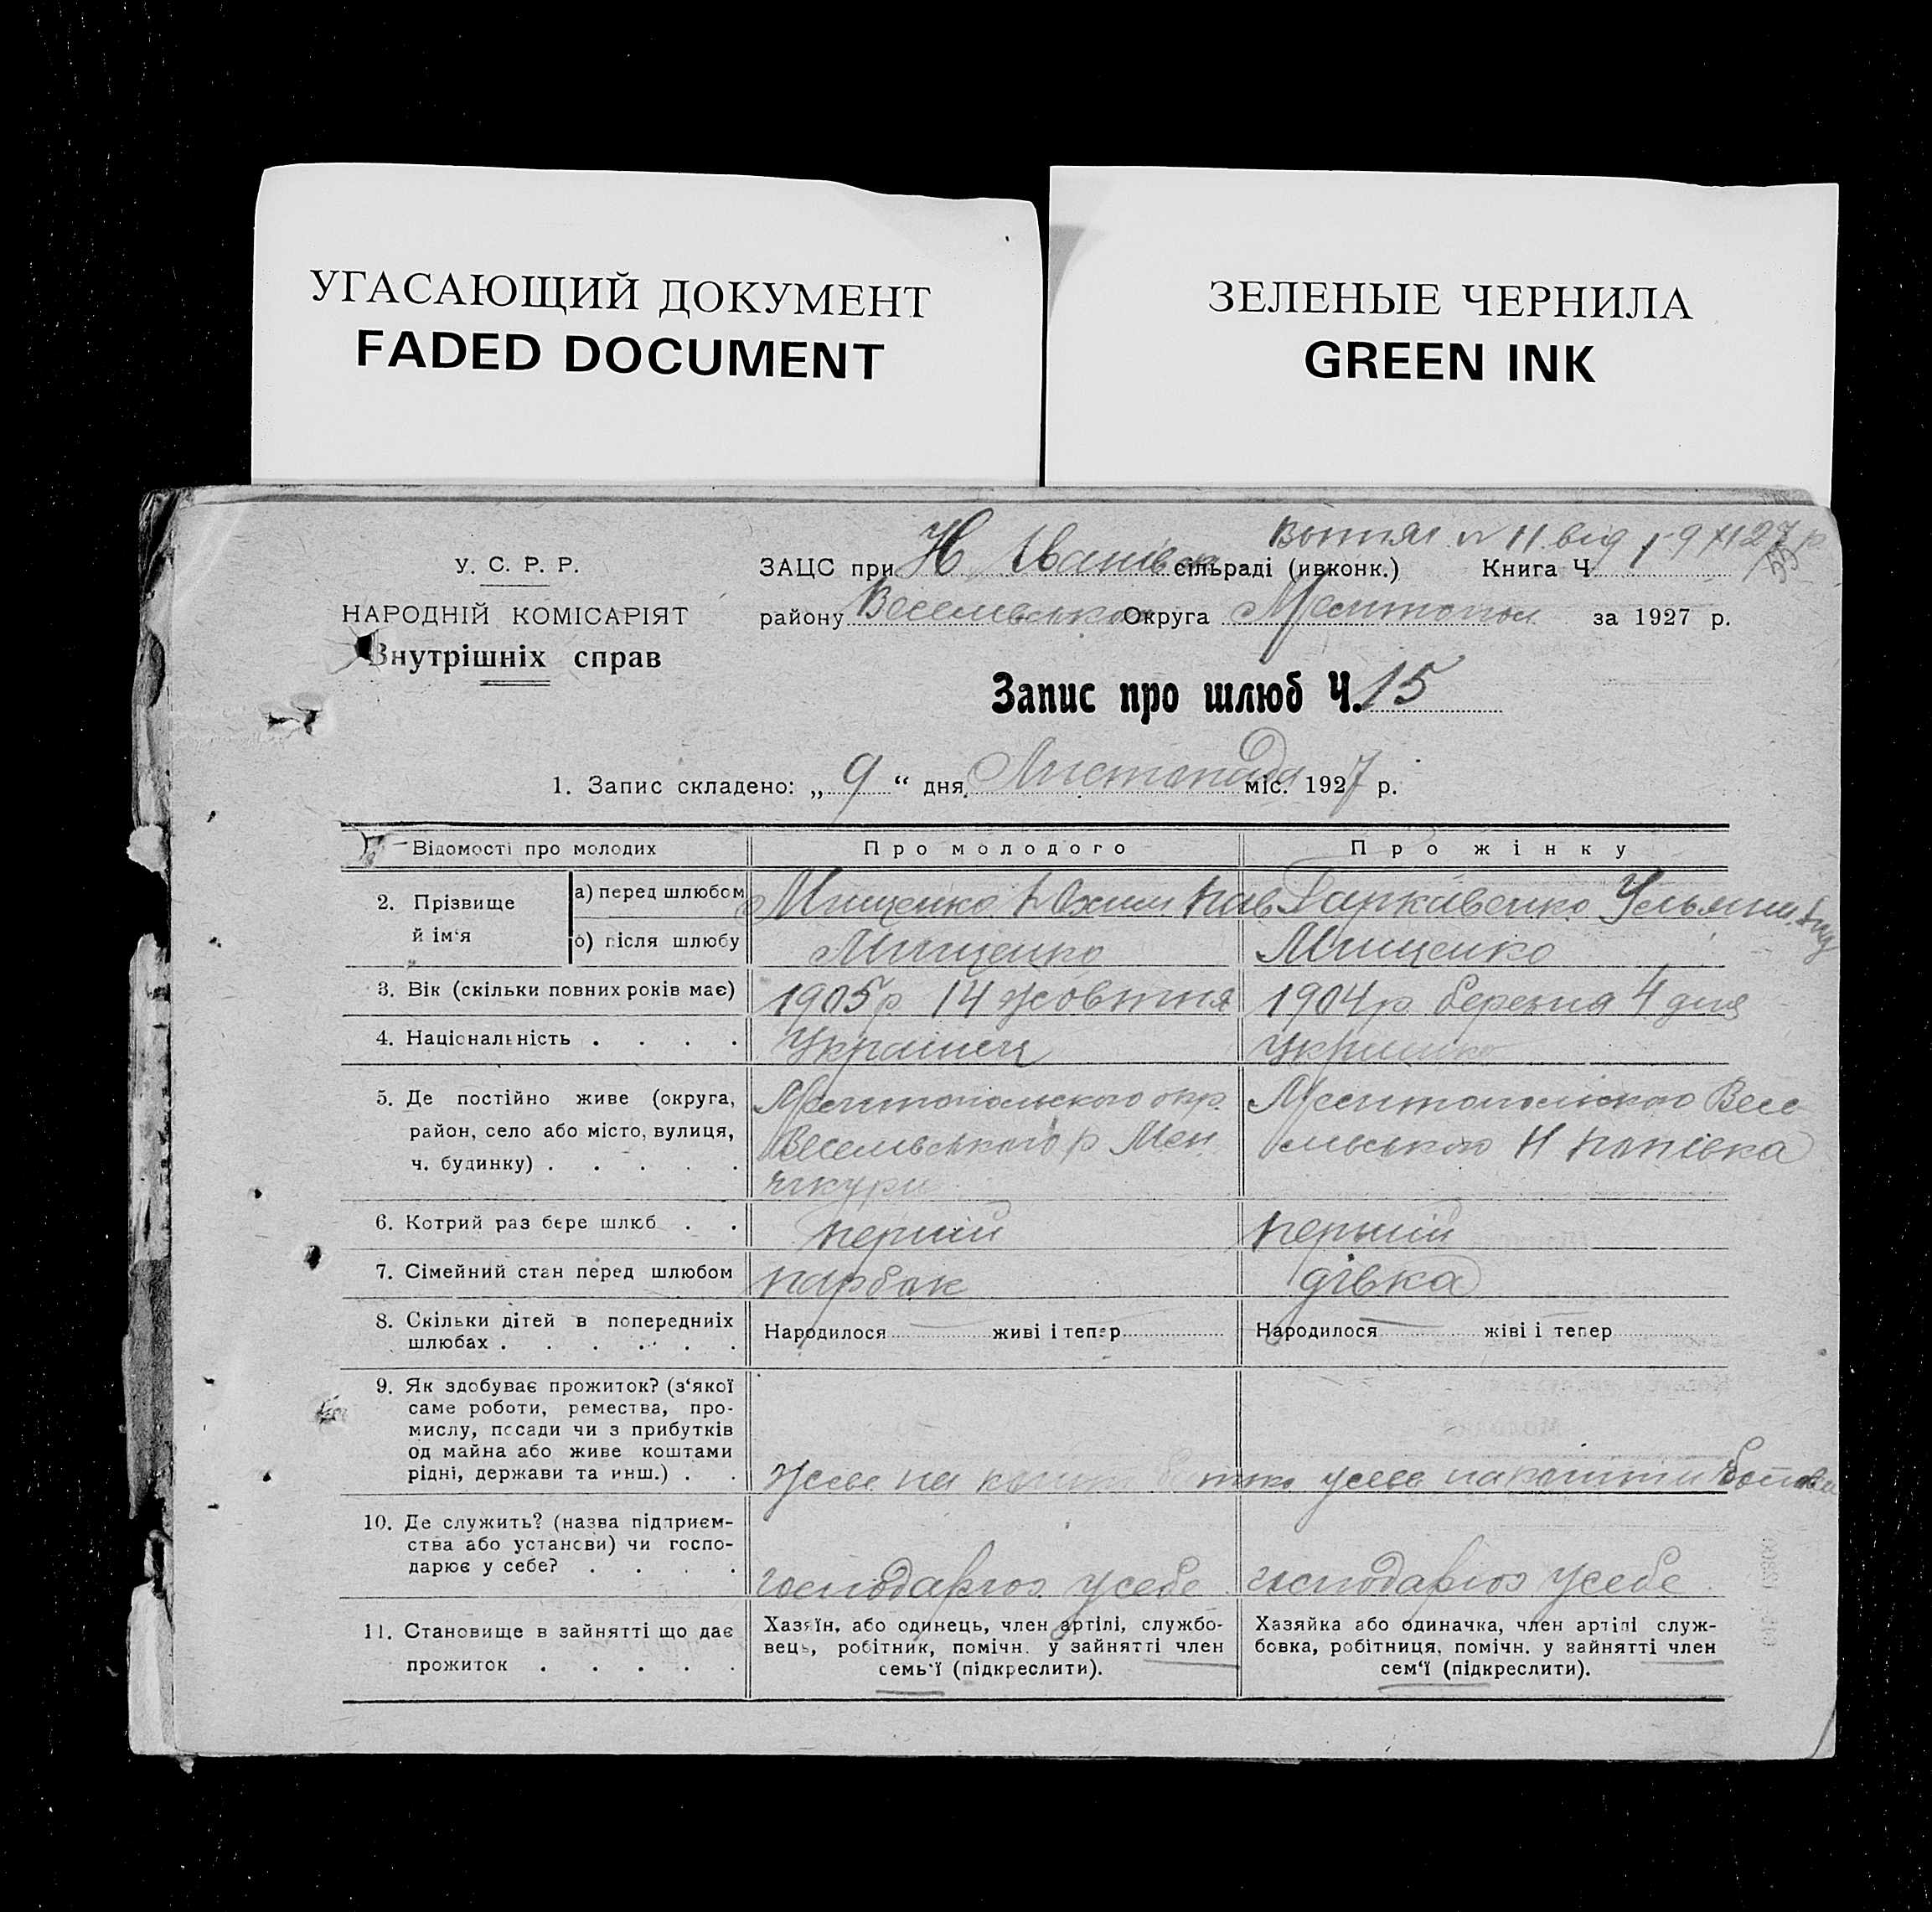 УГАСАЮЩИЙ ДОКУМЕНТ
FADED DOCUMENT
ЗЕЛЕНЫЕ ЧЕРНИЛА
GREEN INK
У. С. Р. Р.
НАРОДНІЙ КОМІСАРІЯТ
Внутрішніх справ
11 від 9 XI 27 р
ЗАЦС при Н Іванівск сільраді (ивконк.) Книга Ч. 1
району Веселівсько Округа Мелитопол за 1927 р.
Запис про шлюб Ч. 15
1. Запис складено: „ 9 “ дня Листопада міс. 1927 р.
Відомості про молодих
Про молодого
Про жінку
2. Прізвище й ім‘я
а) перед шлюбом
Мищенко Юхим Пав
Гаркавенко Ульяна
б) після шлюбу
Мищенко
Мищенко
3. Вік (скільки повних років має)
1905 р 14 жовтня
1904 р березня 4 дня
4. Національність . . . .
Українец
Украінка
5. Де постійно живе (округа,
район, село або місто, вулиця,
ч. будинку) . . . . .
Мелитопольского окр.
Веселівського р Мен
чикури
Мелитопольского Весе
лівського
6. Котрий раз бере шлюб . .
перший
перший
7. Сімейний стан перед шлюбом
парбок
дівка
8. Скільки дітей в попередниіх
шлюбах . . . . . .
Народилося живі і тепер
Народилося жіві і тепер
9. Як здобуває прожиток? (з‘якої
саме роботи, ремества, про-
мислу, посади чи з прибутків
од майна або живе коштами
рідні, держави та инш.) . .
живе на кошти
живе на кошти батька
10. Де служить? (назва підприєм-
ства або установи) чи госпо-
дарює у себе? . . . .
господарює у себе
господарює у себе
11. Становище в зайнятті що дає
прожиток . . . . .
Хазяїн, або одинець, член артілі, службо-
вець, робітник, помічн. у зайнятті член
семь‘ї (підкреслити).
Хазяйка або одиначка, член артілі служ-
бовка, робітниця, помічн. у зайнятті член
сем‘ї (підкреслити).